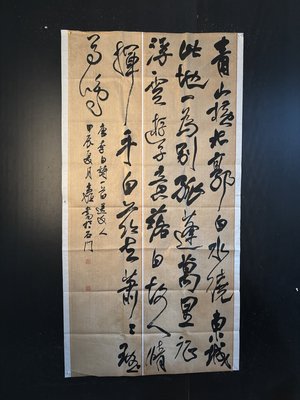 青山横北郭白水绕东城
此地一为别孤蓬万里征
浮云游子意落日故人情
挥手自兹去萧萧班
马鸣
唐李白赠一首送友人
甲辰夏月 书于石门